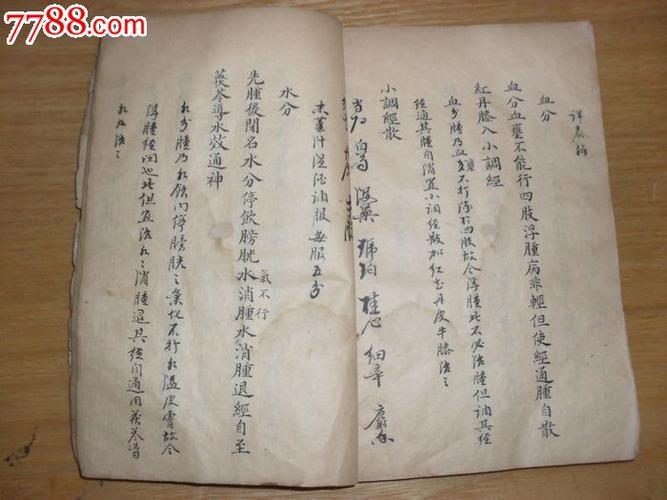 7788.com
血分
血分血壅不能行四肢浮腫病非輕但使經通腫自散
紅丹膝入小調經
血分腫乃血壅不行流於四肢故令浮腫此不必治腫但調其經
經通其腫自消宜小調經散加紅花丹皮牛膝治之
小調經散
當歸 白芍 沒藥 琥珀 桂心 細辛 麝香
末薑汁溫酒調服每服五分
水分
先腫後閉名水分停飲膀胱氣不行水消腫退經自至
茯苓導水效通神
水分腫乃水飲內停膀胱之氣化不行水溢皮膚故令
浮腫經閉也此但宜治水水消腫退其經自通用茯苓導
水丸治之